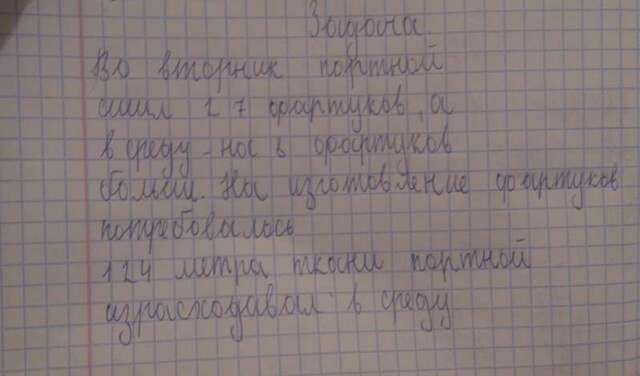 Задача.
Во вторник портной
сшил 17 фартуков, а
в среду - на 6 фартуков
больш. На изготовление фартуков
потребовалось
124 метра ткани портной
израсходавал в среду